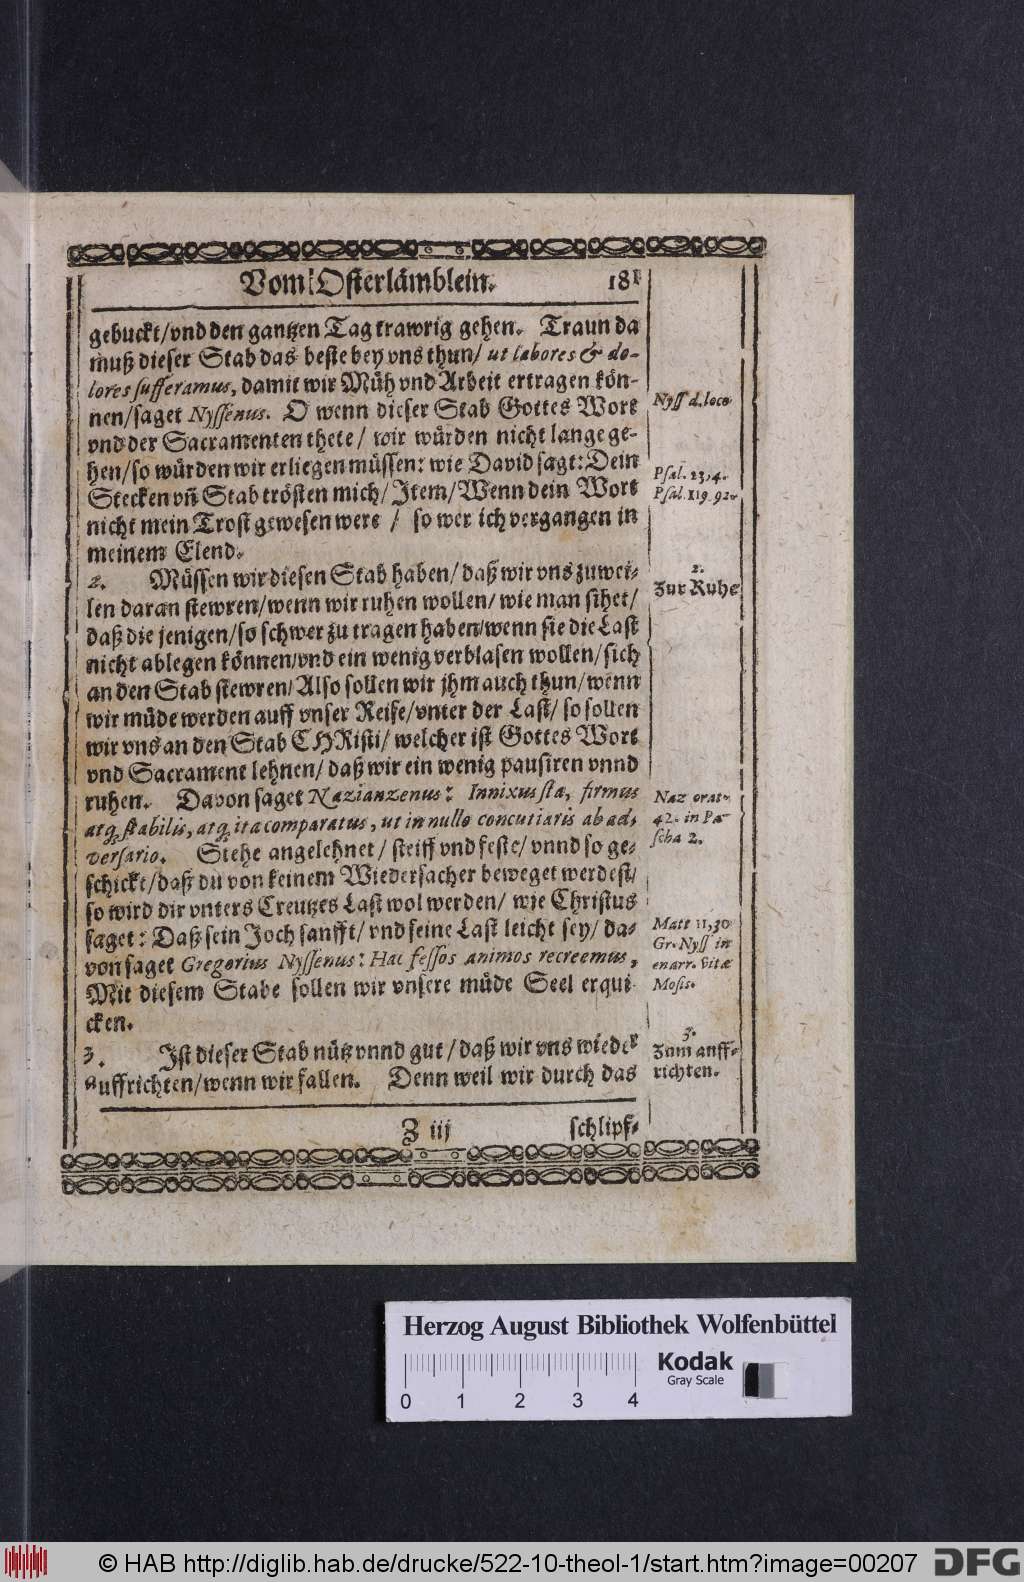 Vom Osterlämblein. 181
gebuckt/vnd den gantzen Tag trawrig gehen. Traun da
muß dieser Stab das beste bey vns thun/ ut labores & do-
lores sufferamus, damit wir Müh vnd Arbeit ertragen kön-
nen/saget Nyssenus. O wenn dieser Stab Gottes Wort
vnd der Sacramenten thete/ wir würden nicht lange ge-
hen/so würden wir erliegen müssen: wie David sagt: Dein
Stecken vñ Stab trösten mich/ Item/ Wenn dein Wort
nicht mein Trost gewesen were / so wer ich vergangen in
meinem Elend.
2. Müssen wir diesen Stab haben/ daß wir vns zuwei-
len daran stewren/wenn wir ruhen wollen/ wie man sihet/
daß die jenigen/so schwer zu tragen haben/wenn sie die Last
nicht ablegen können/vnd ein wenig verblasen wollen/ sich
an den Stab stewren/ Also sollen wir jhm auch thun/ wenn
wir müde werden auff vnser Reise/vnter der Last/ so sollen
wir vns an den Stab CHRisti/ welcher ist Gottes Wort
vnd Sacrament lehnen/ daß wir ein wenig pausiren vnnd
ruhen. Davon saget Nazianzenus: Innixus sta, firmus
atq; stabilis, atq; ita comparatus, ut in nullo concutiaris ab ad-
versario. Stehe angelehnet/ steiff vnd feste/ vnnd so ge-
schickt/daß du von keinem Wiedersacher beweget werdest/
so wird dir vnters Creutzes Last wol werden/ wie Christus
saget: Daß sein Joch sanfft/ vnd seine Last leicht sey/ da-
von saget Gregorius Nyssenus: Hac fessos animos recreemus,
Mit diesem Stabe sollen wir vnsere müde Seel erqui
cken.
3. Ist dieser Stab nütz vnnd gut/daß wir vns wieder
auffrichten/wenn wir fallen. Denn weil wir durch das
Z iij schlipf-
Nyss d. loco
Psal. 23,4.
Psal. 119. 92.
2.
Zur Ruhe
Naz orat.
42. in Pa-
scha 2.
Matt 11,30
Gr. Nyss in
enarr. vitæ
Mosis.
3.
Zum auff-
richten.
Herzog August Bibliothek Wolfenbüttel
Kodak
Gray Scale
0 1 2 3 4
© HAB http://diglib.hab.de/drucke/522-10-theol-1/start.htm?image=00207
DFG